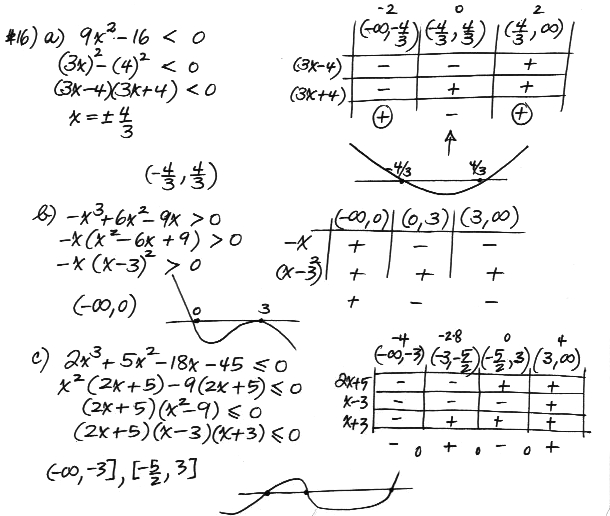 #16) a) 9x² - 16 < 0
(3x)² - (4)² < 0
(3x-4)(3x+4) < 0
x = ± 4/3
(-4/3, 4/3)
-2 0 2
(-∞, -4/3) (-4/3, 4/3) (4/3, ∞)
(3x-4) - - +
(3x+4) - + +
+ - +
-4/3 4/3
b) -x³ + 6x² - 9x > 0
-x(x² - 6x + 9) > 0
-x(x-3)² > 0
(-∞, 0)
0 3
(-∞, 0) (0, 3) (3, ∞)
-x + - -
(x-3)² + + +
+ - -
c) 2x³ + 5x² - 18x - 45 ≤ 0
x²(2x+5) - 9(2x+5) ≤ 0
(2x+5)(x²-9) ≤ 0
(2x+5)(x-3)(x+3) ≤ 0
(-∞, -3], [-5/2, 3]
-4 -2.8 0 4
(-∞, -3) (-3, -5/2) (-5/2, 3) (3, ∞)
2x+5 - - + +
x-3 - - - +
x+3 - + + +
- 0 + 0 - 0 +